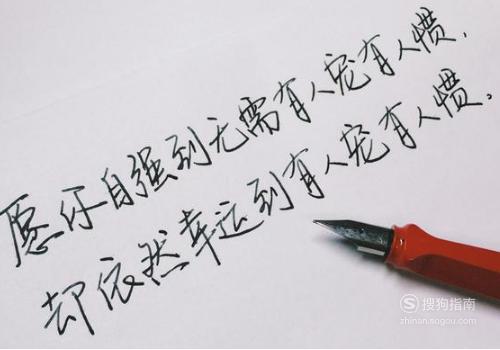 愿你自强到无需有人宠有人惯，
却依然幸运到有人宠有人惯。
搜狗指南
zhinan.sogou.com